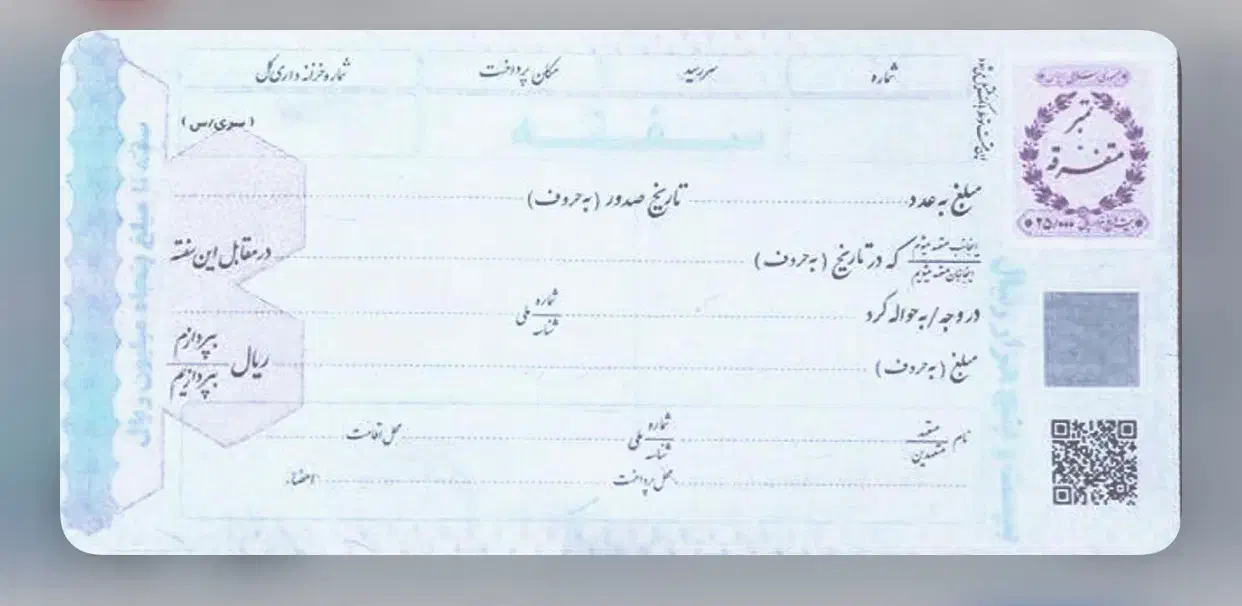 شماره
سررسید
مکان پرداخت
شماره خزانه داری کل
(سری/س)
سفته
مبلغ به عدد
تاریخ صدور (به حروف)
اینجانب متعهد میشوم
اینجانبان متعهد میشویم
که در تاریخ (به حروف)
در مقابل این سفته
در وجه/به حواله کرد
شماره
شناسه
ملی
مبلغ (به حروف)
ریال
بپردازم
بپردازیم
نام
متعهد
متعهدین
شماره
شناسه
ملی
محل اقامت
محل پرداخت
امضاء
سفته تا مبلغ پنجاه میلیون ریال
جمهوری اسلامی ایران
تمبر
متفرقه
۲۵/۰۰۰
بیست و پنج هزار ریال